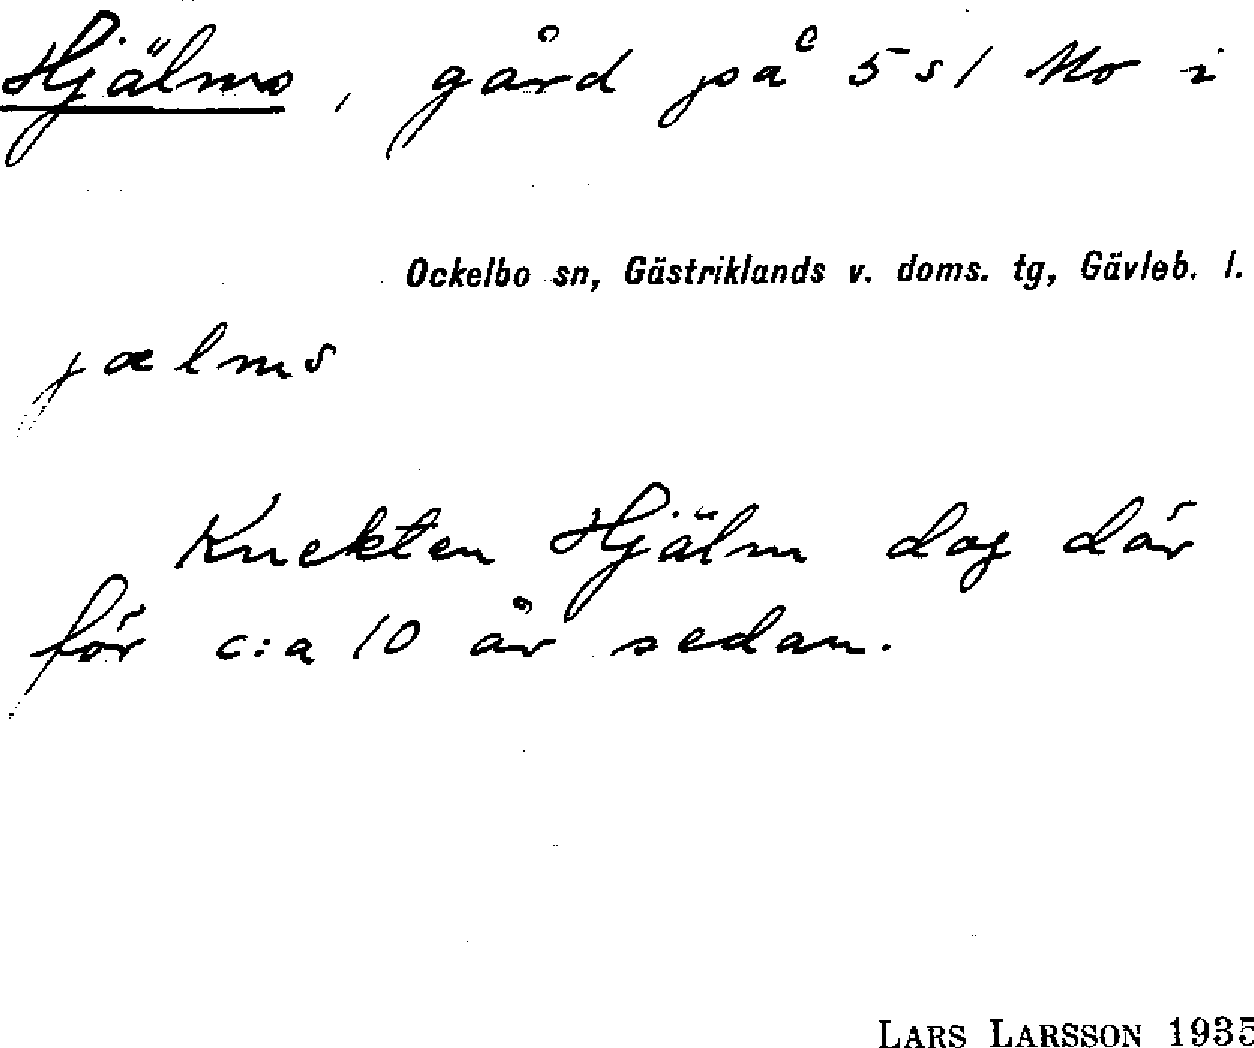 Hjälms, gård på 5 s/ Mo i
Ockelbo sn, Gästriklands v. doms. tg, Gävleb. l.
jælms
Knekten Hjälm dog där
för c:a 10 år sedan.
LARS LARSSON 1935